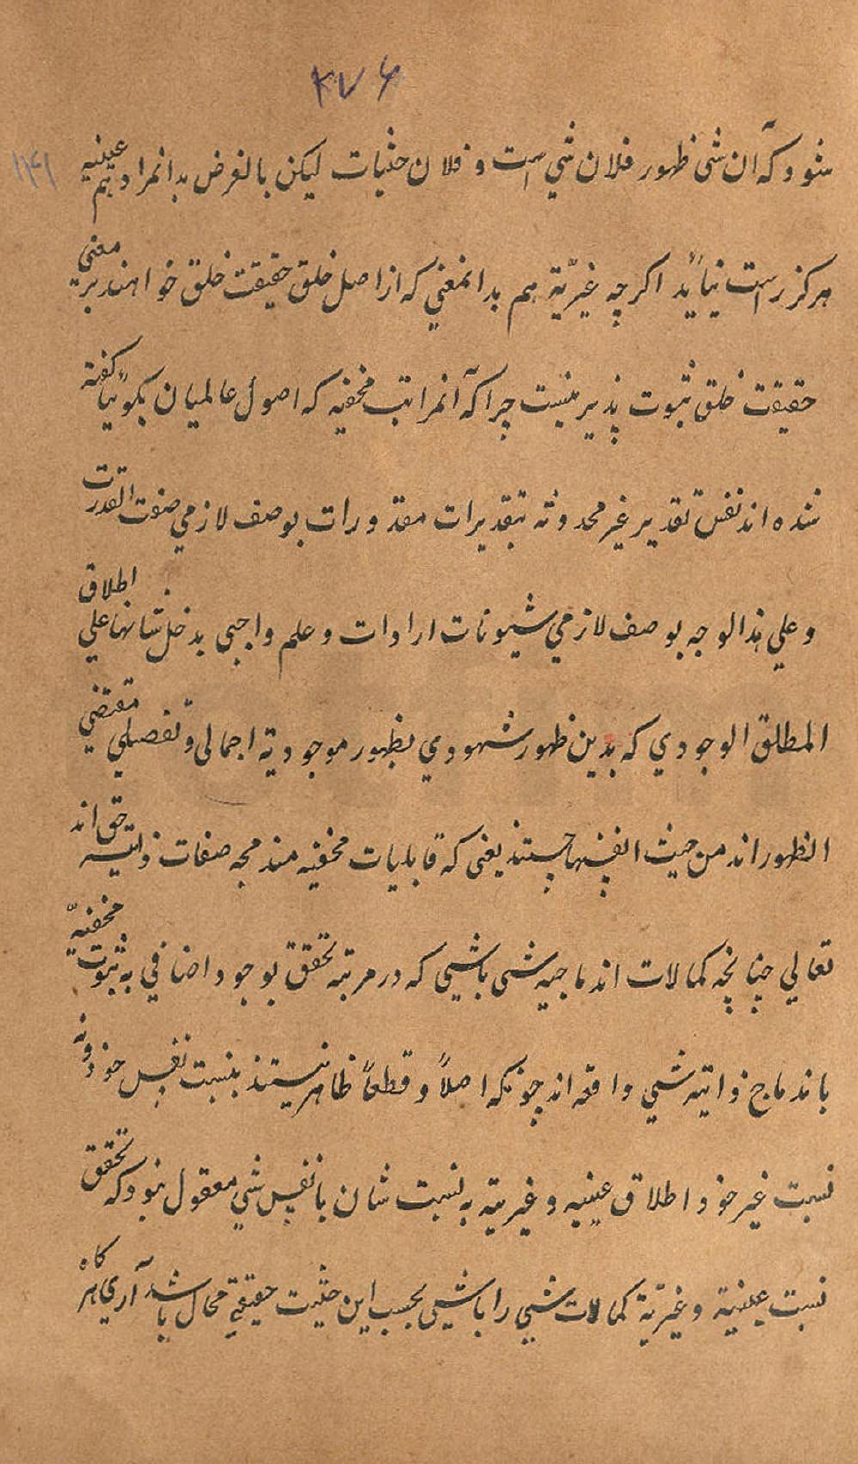 ۳۷۶
۱۴۱
شود که آن شی ظهور فلان شی است و فلان حثیات لیکن بالفرض بدانمراد هم عینیه
هرکز راست نیاید اکرچه غیریّة هم بدانمعنی که از اصل خلق حقیقت خلق خواهند بر معنی
حقیقت خلق ثبوت پذیر نیست چرا که آنمراتب مخفیه که اصول عالمیان بکویا کفته
شده اند نفس تقدیر غیر محدوثه بتقدیرات مقدورات بوصف لازمی صفت القدرت
و علی هذالوجه بوصف لازمی شیونات ارادات و علم واجبی بدخل شانها علی اطلاق
المطلق الوجودی که بدین ظهور شهودی بظهور موجودیة اجمالی و تفصیلی مقتضی
الظهور اند من حیث انفسها چیستند یعنی که قابلیات مخفیه مندمجه صفات ذاتیه حق اند
تعالی چنانچه کمالات اندماجیه شی باشیی که در مرتبه تحقق بوجود اضافی به ثبوت مخفیّه
باندماج ذاتیه شی واقعه اند چونکه اصلاً و قطعاً ظاهر نیستند بنسبت نفس خود و نه
نسبت غیر خود اطلاق عینیه و غیریة به نسبت شان بانفس شی معقول نبود که تحقق
نسبت عینیة و غیریّة کمالات شی را باشیی بحسب این حثیت حقیقی محال باشد آری هر کاه